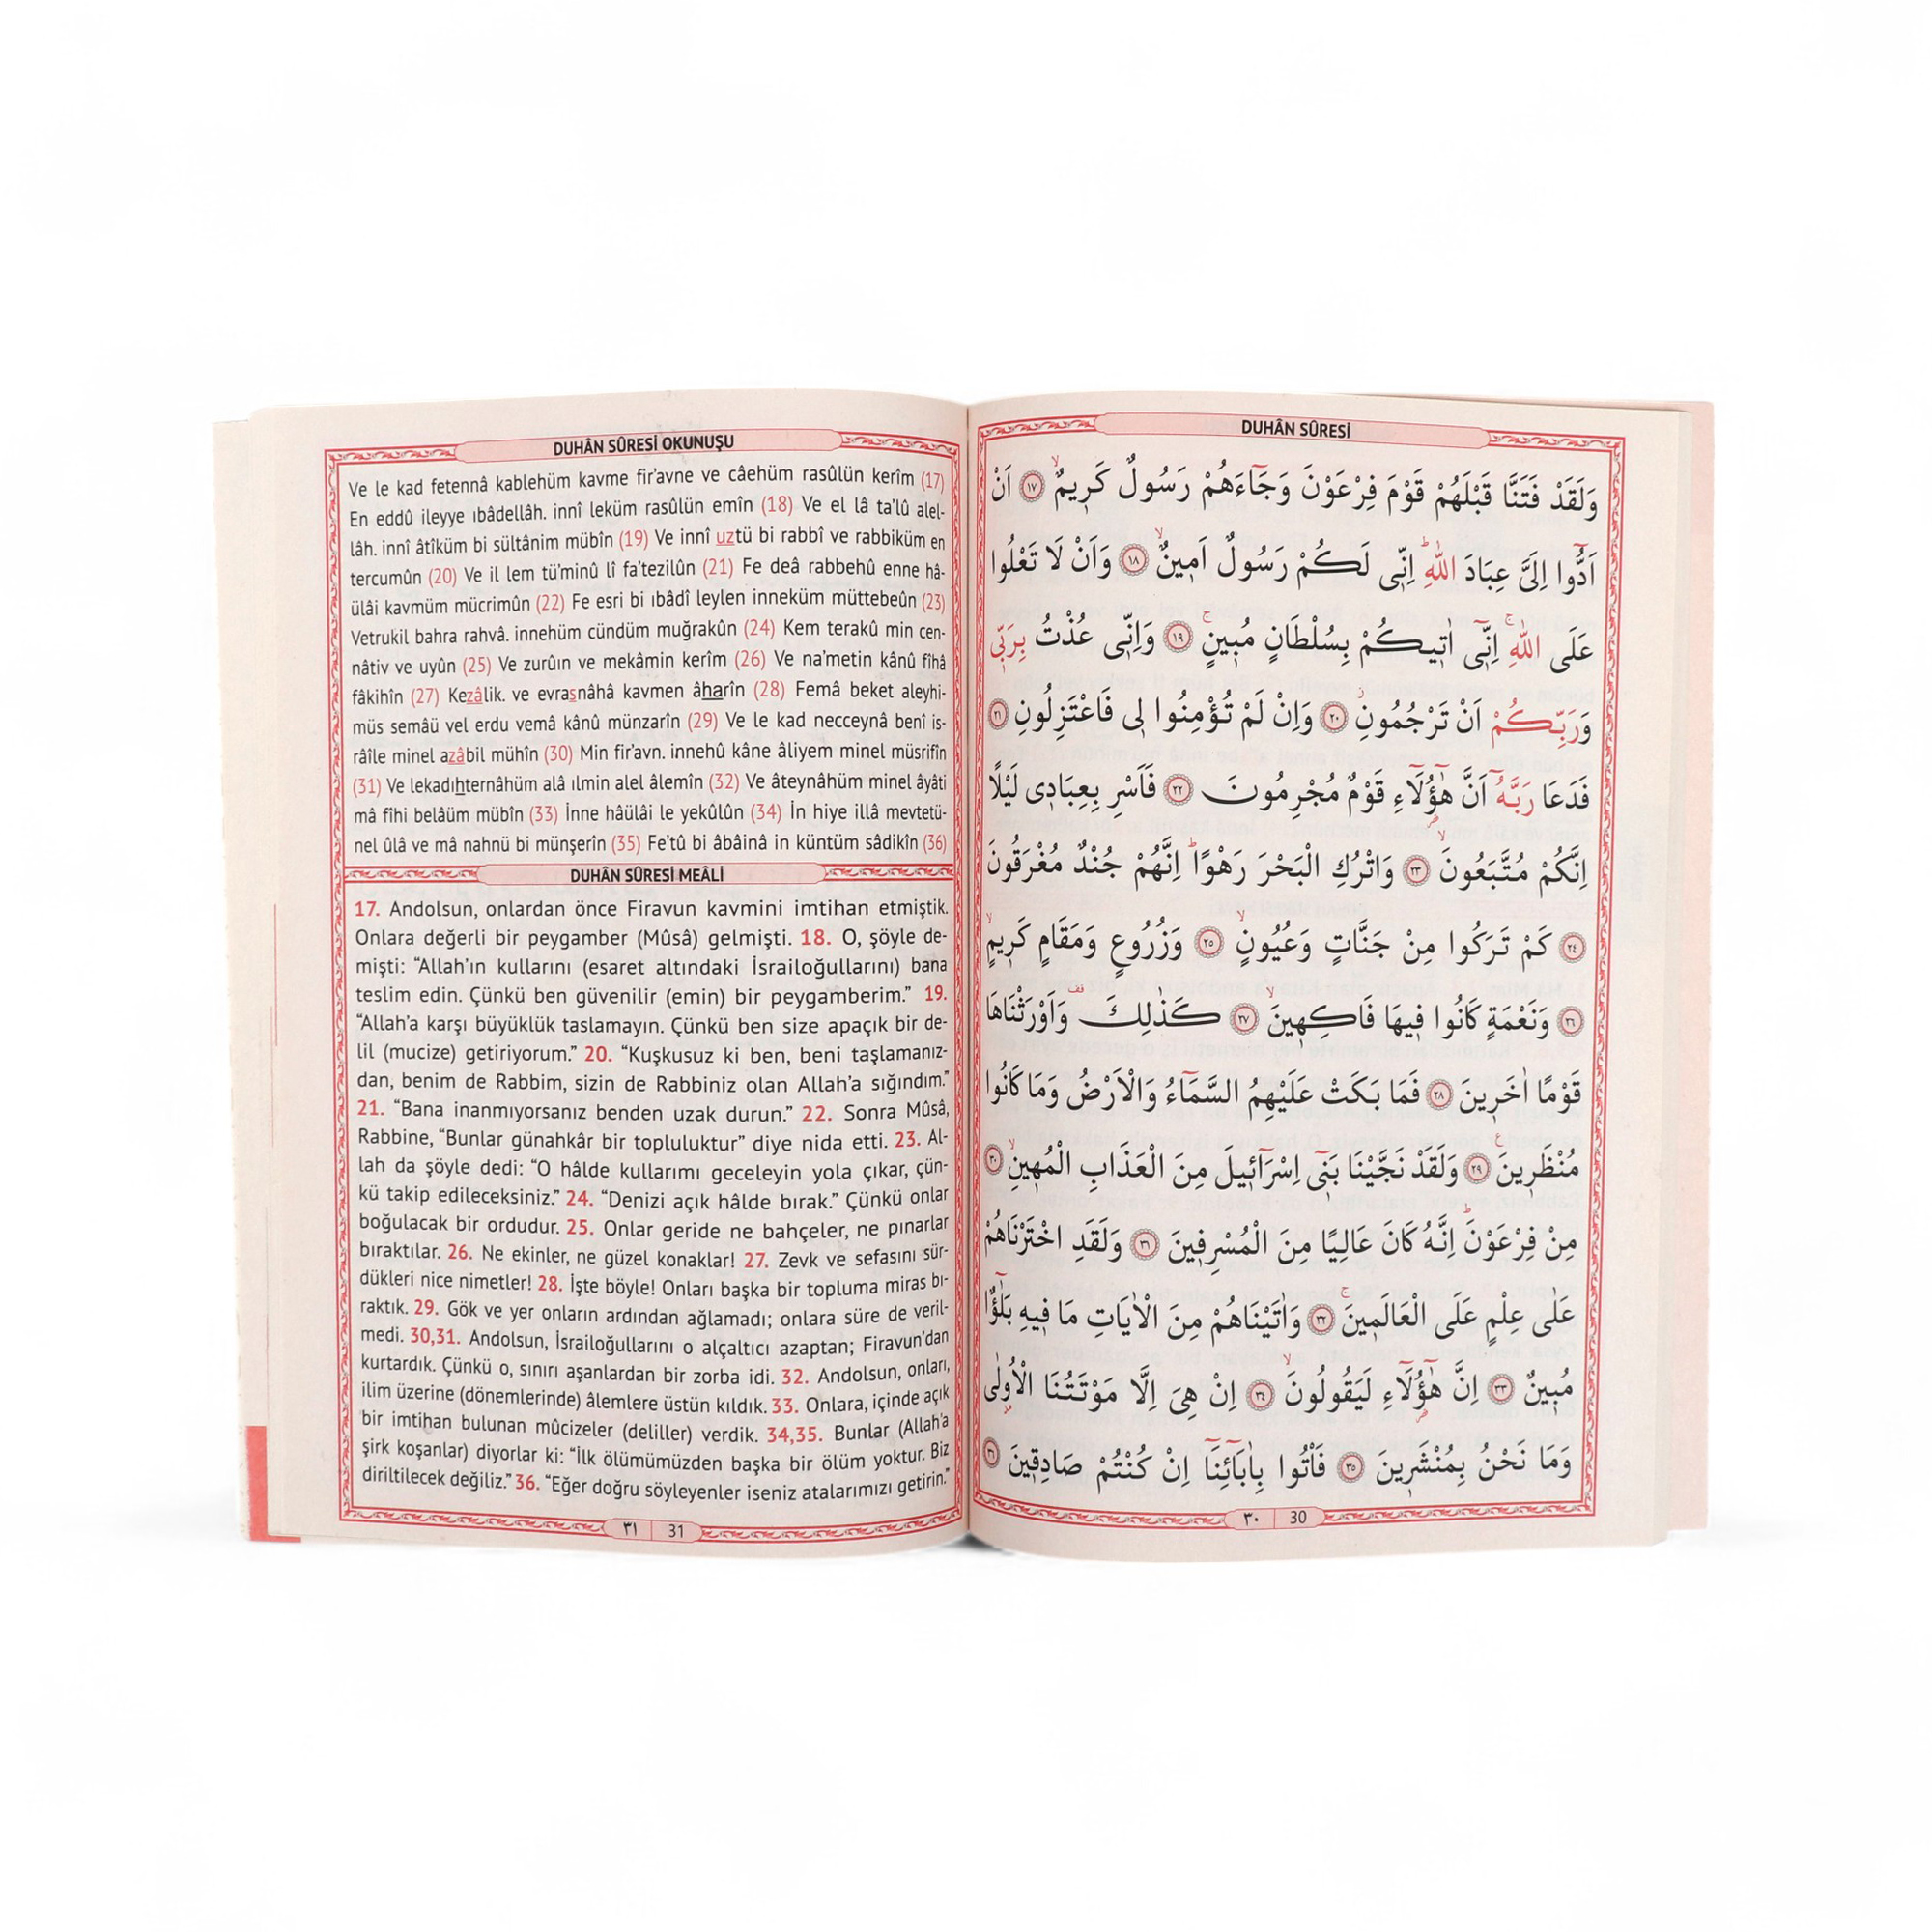 DUHÂN SÛRESİ
وَلَقَدْ فَتَنَّا قَبْلَهُمْ قَوْمَ فِرْعَوْنَ وَجَٓاءَهُمْ رَسُولٌ كَرٖيمٌۙ ﴿١٧﴾ اَنْ
اَدُّٓوا اِلَيَّ عِبَادَ اللّٰهِؕ اِنّٖى لَكُمْ رَسُولٌ اَمٖينٌۙ ﴿١٨﴾ وَاَنْ لَا تَعْلُوا
عَلَى اللّٰهِۚ اِنّٖٓى اٰتٖيكُمْ بِسُلْطَانٍ مُبٖينٍۚ ﴿١٩﴾ وَاِنّٖى عُذْتُ بِرَبّٖى
وَرَبِّكُمْ اَنْ تَرْجُمُونِؗ ﴿٢٠﴾ وَاِنْ لَمْ تُؤْمِنُوا لٖى فَاعْتَزِلُونِ ﴿٢١﴾
فَدَعَا رَبَّهُٓ اَنَّ هٰٓؤُ۬لَٓاءِ قَوْمٌ مُجْرِمُونَ ﴿٢٢﴾ فَاَسْرِ بِعِبَادٖى لَيْلًا
اِنَّكُمْ مُتَّبَعُونَۙ ﴿٢٣﴾ وَاتْرُكِ الْبَحْرَ رَهْوًاؕ اِنَّهُمْ جُنْدٌ مُغْرَقُونَ
﴿٢٤﴾ كَمْ تَرَكُوا مِنْ جَنَّاتٍ وَعُيُونٍۙ ﴿٢٥﴾ وَزُرُوعٍ وَمَقَامٍ كَرٖيمٍۙ
﴿٢٦﴾ وَنَعْمَةٍ كَانُوا فٖيهَا فَاكِهٖينَۙ ﴿٢٧﴾ كَذٰلِكَ وَاَوْرَثْنَاهَا
قَوْمًا اٰخَرٖينَ ﴿٢٨﴾ فَمَا بَكَتْ عَلَيْهِمُ السَّمَٓاءُ وَالْاَرْضُ وَمَا كَانُوا
مُنْظَرٖينَ ﴿٢٩﴾ وَلَقَدْ نَجَّيْنَا بَنٖٓى اِسْرَٓائٖيلَ مِنَ الْعَذَابِ الْمُهٖينِۙ ﴿٣٠﴾
مِنْ فِرْعَوْنَؕ اِنَّهُ كَانَ عَالِيًا مِنَ الْمُسْرِفٖينَ ﴿٣١﴾ وَلَقَدِ اخْتَرْنَاهُمْ
عَلٰى عِلْمٍ عَلَى الْعَالَمٖينَۚ ﴿٣٢﴾ وَاٰتَيْنَاهُمْ مِنَ الْاٰيَاتِ مَا فٖيهِ بَلٰٓؤٌا
مُبٖينٌ ﴿٣٣﴾ اِنَّ هٰٓؤُ۬لَٓاءِ لَيَقُولُونَۙ ﴿٣٤﴾ اِنْ هِيَ اِلَّا مَوْتَتُنَا الْاُو۫لٰى
وَمَا نَحْنُ بِمُنْشَرٖينَ ﴿٣٥﴾ فَأْتُوا بِاٰبَٓائِنَٓا اِنْ كُنْتُمْ صَادِقٖينَ ﴿٣٦﴾
٣٠ 30
DUHÂN SÛRESİ OKUNUŞU
Ve le kad fetennâ kablehüm kavme fir'avne ve câehüm rasûlün kerîm (17)
En eddû ileyye ıbâdellâh. innî leküm rasûlün emîn (18) Ve el lâ ta'lû alel-
lâh. innî âtîküm bi sültânim mübîn (19) Ve innî uztü bi rabbî ve rabbiküm en
tercumûn (20) Ve il lem tü'minû lî fa'tezilûn (21) Fe deâ rabbehû enne hâ-
ülâi kavmüm mücrimûn (22) Fe esri bi ıbâdî leylen inneküm müttebeûn (23)
Vetrukil bahra rahvâ. innehüm cündüm muğrakûn (24) Kem terakû min cen-
nâtiv ve uyûn (25) Ve zurûın ve mekâmin kerîm (26) Ve na'metin kânû fîhâ
fâkihîn (27) Kezâlik. ve evrasnâhâ kavmen âharîn (28) Femâ beket aleyhi-
müs semâü vel erdu vemâ kânû münzarîn (29) Ve le kad necceynâ benî is-
râîle minel azâbil mühîn (30) Min fir'avn. innehû kâne âliyem minel müsrifîn
(31) Ve lekadıhternâhüm alâ ılmin alel âlemîn (32) Ve âteynâhüm minel âyâti
mâ fîhi belâüm mübîn (33) İnne hâülâi le yekûlûn (34) İn hiye illâ mevtetü-
nel ûlâ ve mâ nahnü bi münşerîn (35) Fe'tû bi âbâinâ in küntüm sâdikîn (36)
DUHÂN SÛRESİ MEÂLİ
17. Andolsun, onlardan önce Firavun kavmini imtihan etmiştik.
Onlara değerli bir peygamber (Mûsâ) gelmişti. 18. O, şöyle de-
mişti: “Allah’ın kullarını (esaret altındaki İsrailoğullarını) bana
teslim edin. Çünkü ben güvenilir (emin) bir peygamberim.” 19.
“Allah’a karşı büyüklük taslamayın. Çünkü ben size apaçık bir de-
lil (mucize) getiriyorum.” 20. “Kuşkusuz ki ben, beni taşlamanız-
dan, benim de Rabbim, sizin de Rabbiniz olan Allah’a sığındım.”
21. “Bana inanmıyorsanız benden uzak durun.” 22. Sonra Mûsâ,
Rabbine, “Bunlar günahkâr bir topluluktur” diye nida etti. 23. Al-
lah da şöyle dedi: “O hâlde kullarımı geceleyin yola çıkar, çün-
kü takip edileceksiniz.” 24. “Denizi açık hâlde bırak.” Çünkü onlar
boğulacak bir ordudur. 25. Onlar geride ne bahçeler, ne pınarlar
bıraktılar. 26. Ne ekinler, ne güzel konaklar! 27. Zevk ve sefasını sür-
dükleri nice nimetler! 28. İşte böyle! Onları başka bir topluma miras bı-
raktık. 29. Gök ve yer onların ardından ağlamadı; onlara süre de veril-
medi. 30,31. Andolsun, İsrailoğullarını o alçaltıcı azaptan; Firavun’dan
kurtardık. Çünkü o, sınırı aşanlardan bir zorba idi. 32. Andolsun, onları,
ilim üzerine (dönemlerinde) âlemlere üstün kıldık. 33. Onlara, içinde açık
bir imtihan bulunan mûcizeler (deliller) verdik. 34,35. Bunlar (Allah’a
şirk koşanlar) diyorlar ki: “İlk ölümümüzden başka bir ölüm yoktur. Biz
diriltilecek değiliz.” 36. “Eğer doğru söyleyenler iseniz atalarımızı getirin.”
٣١ 31